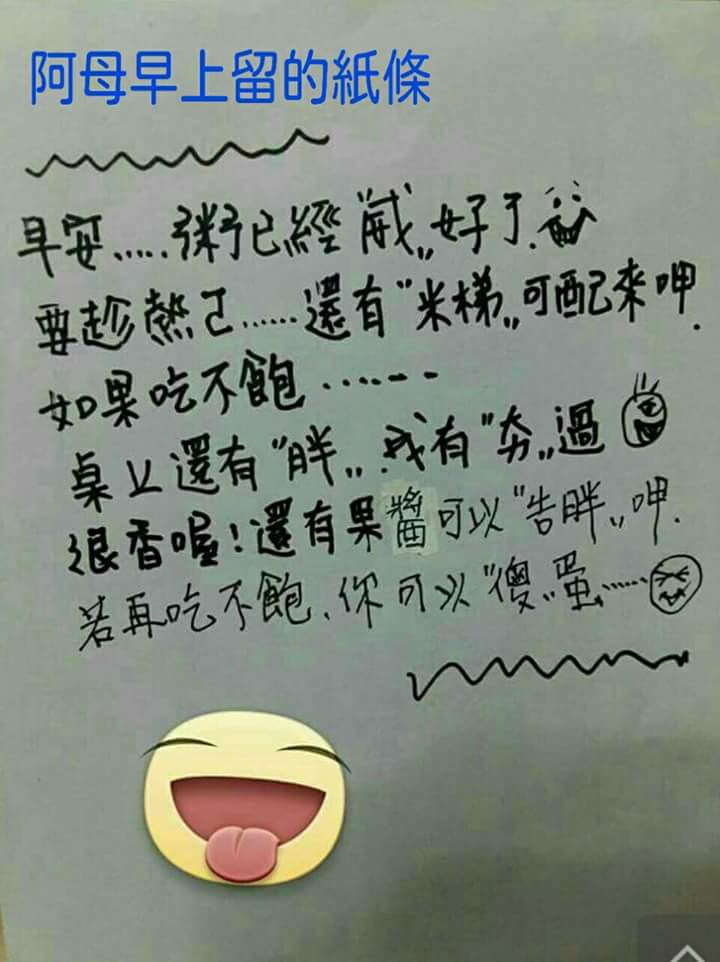 阿母早上留的紙條
早安.....粥已經"„好了.
要趁熱ㄛ......還有"米梯„可配來呷.
如果吃不飽......
桌上還有"胖„.我有"夯„過
很香喔!還有果醬可以"告胖„呷.
若再吃不飽、你可以"傻„蛋......